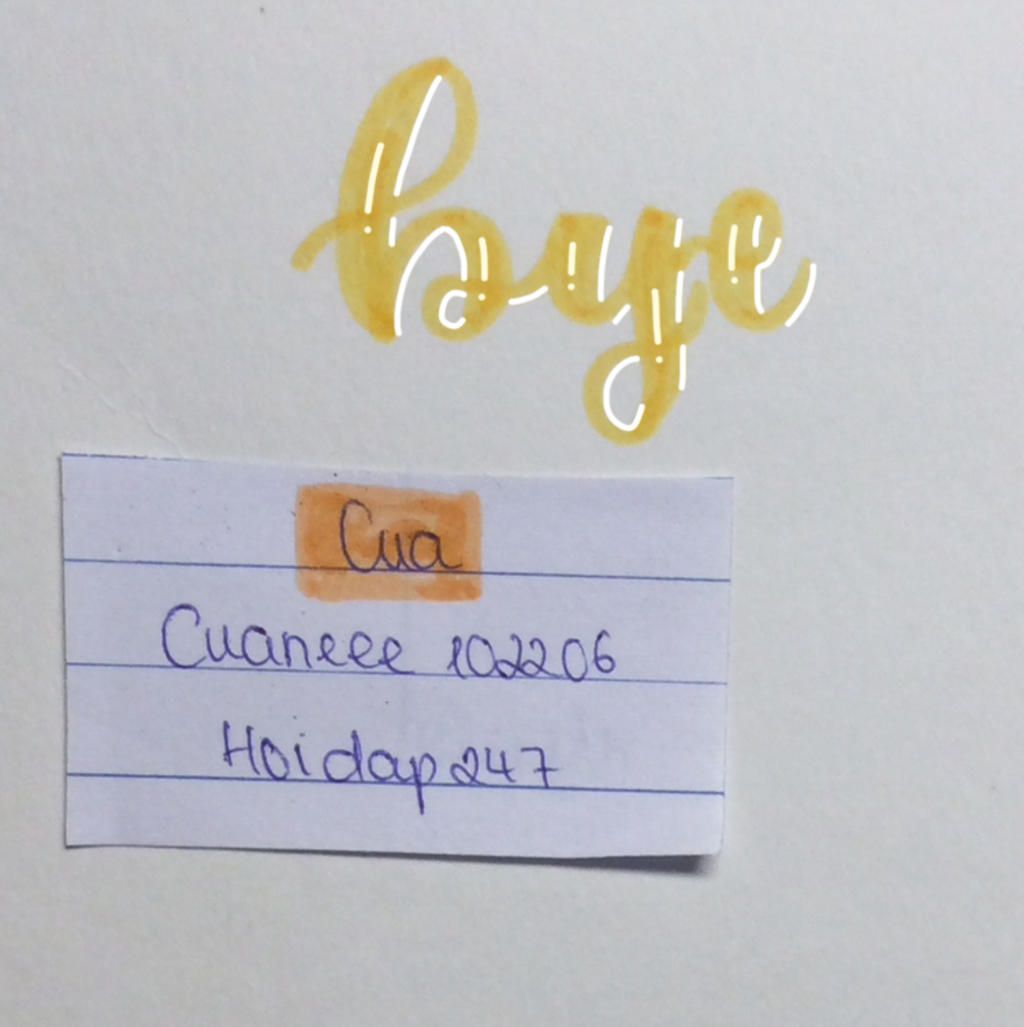 bye
Cua
Cuaneee 102206
Hoidap247